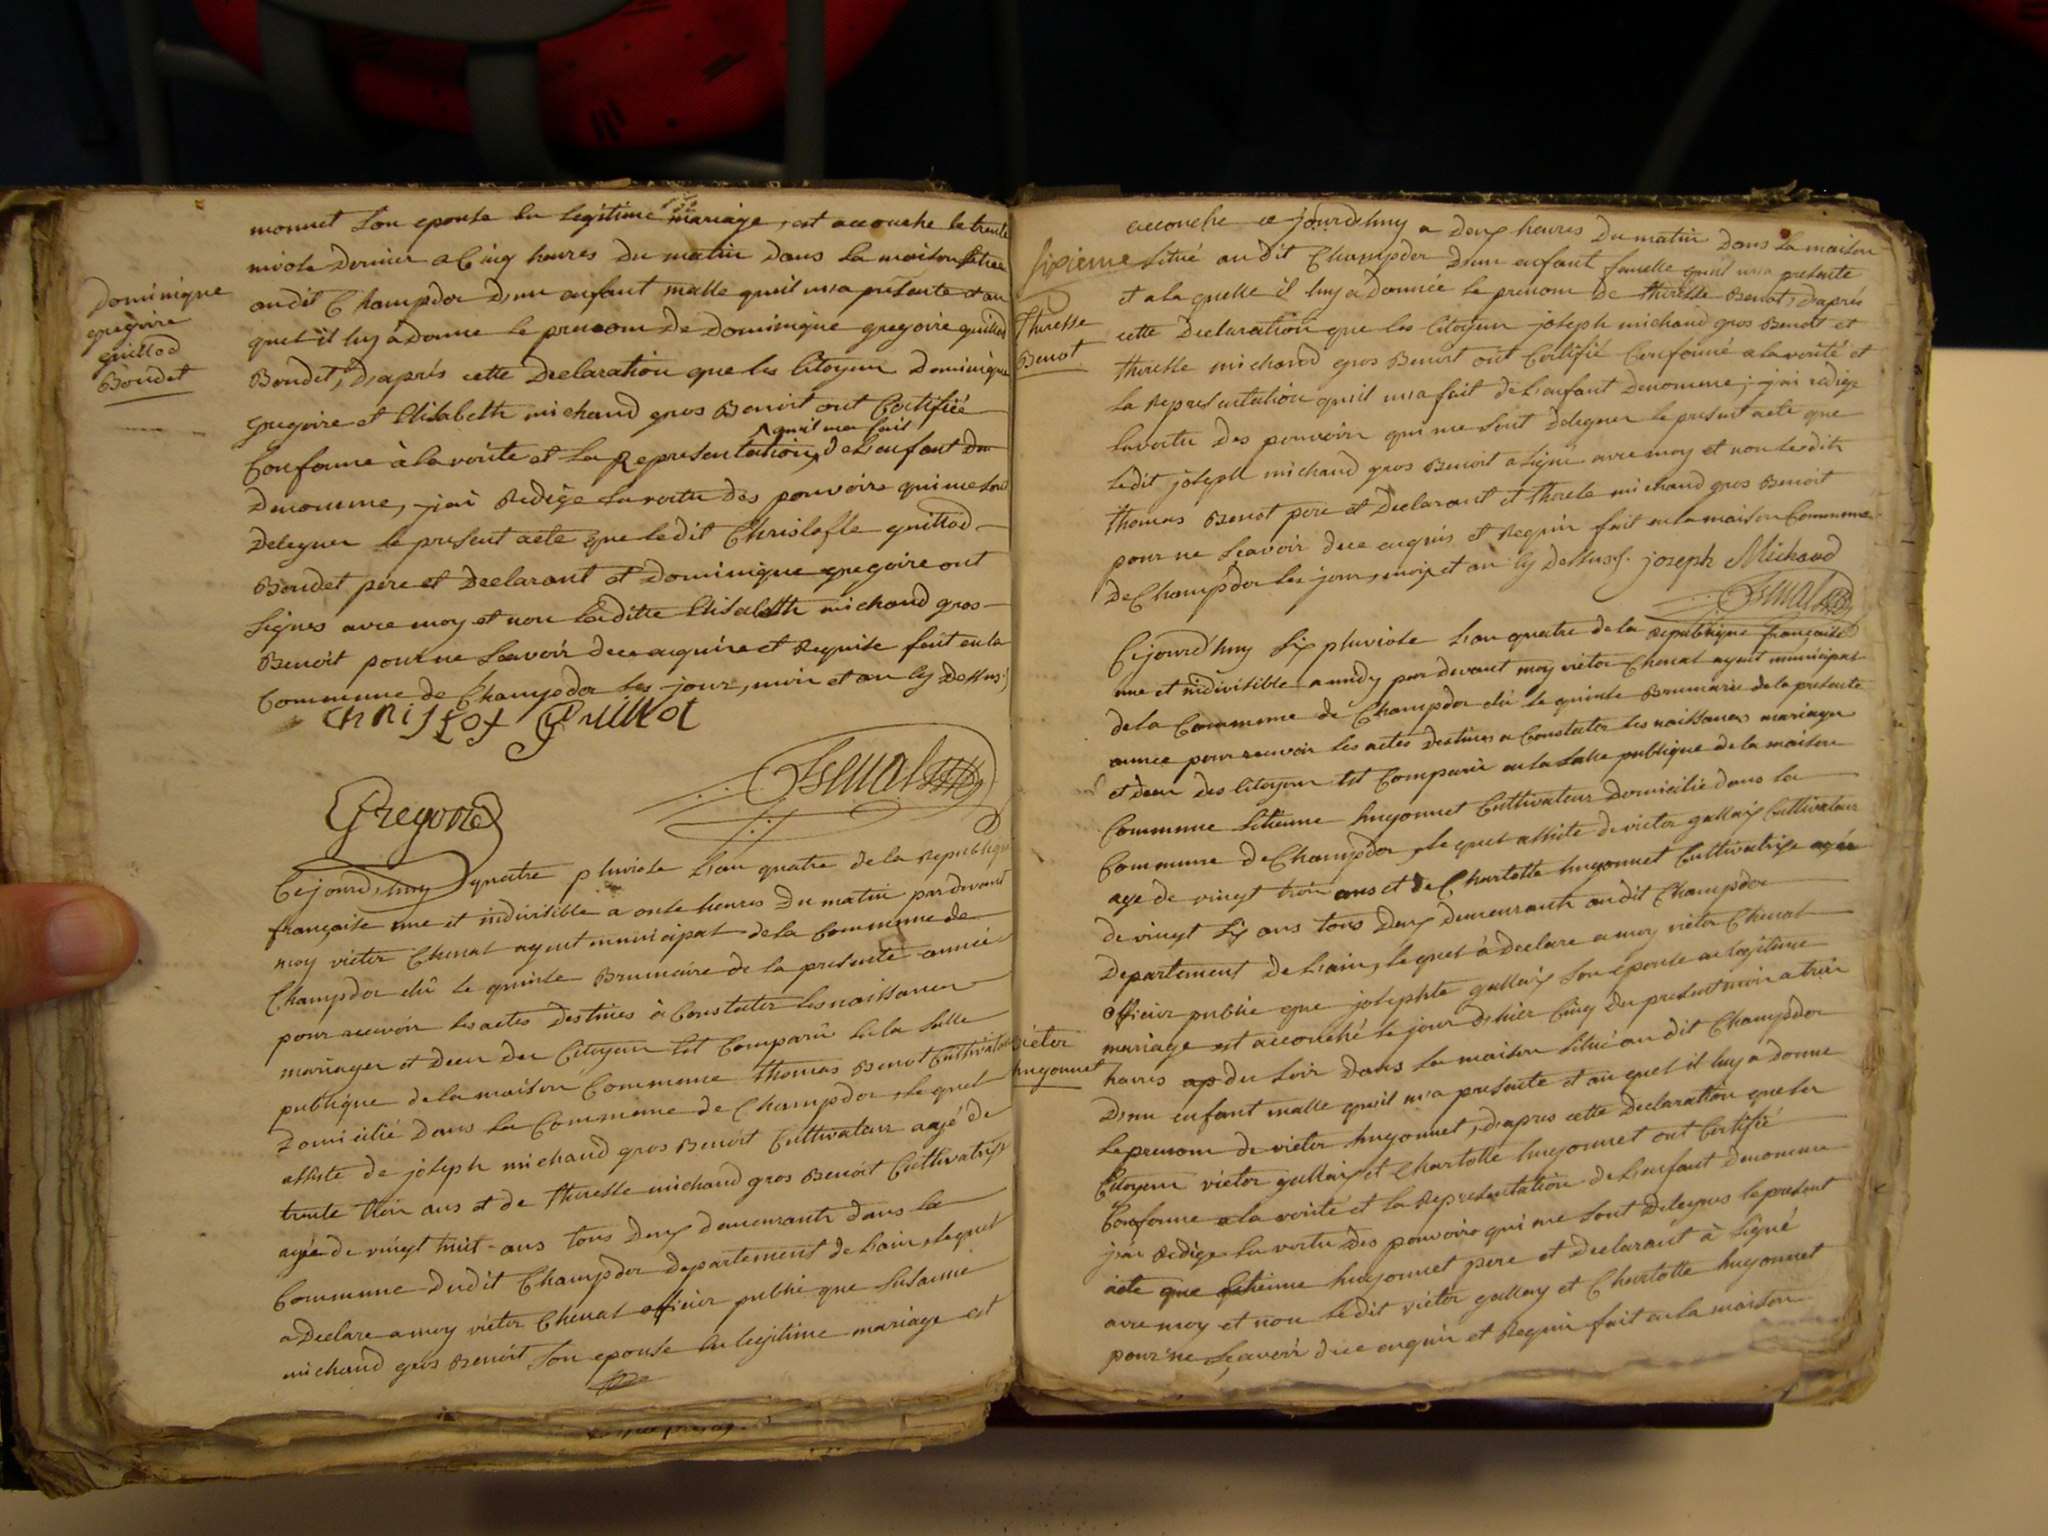 monnet son epouse en legitime mariage, est accouché le trente
nivose dernier a Cinq heures du matin dans sa maison située
audit Champdor d'un enfant malle qu'il m'a présenté et au
quel il luy a donné le prenom de Dominique gregoire guillod
Boudet, D'aprés cette Declaration que les Citoyens Dominique
gregoire et Elisabeth michaud gros Benoit ont Certifiée
Conforme à la vérité et la Representation, qu'il m'a fait de L'enfant du
denommé, j'ai Redigé en vertu des pouvoirs qui me sont
Delegues le présent acte que le dit Christofle guillod
Boudet pere et Declarant et Dominique gregoire ont
signés avec moy et non laditte Elisabeth michaud gros
Benoit pour ne Sçavoir de ce enquire et Requise fait en la
Commune de Champdor les jour, mois et an cy Dessus
Christof Guillot
Chenal
Gregoire
Dominique
gregoire
guillod
Boudet
Cejourd'huy quatre pluviose L'an quatre de la Republique
françoise une et indivisible a onze heures du matin pardevant
moy victor Chenal agent municipal de la Commune de
Champdor élû le quinze Brumaire de la presente année
pour recevoir les actes destinés à Constater les naissances
mariages et Deces des Citoyens Est Comparû en la salle
publique de la maison Commune thomas Benot Cultivateur
Domicilié dans la Commune de Champdor, lequel
assisté de joseph michaud gros Benoit Cultivateur agé de
trente trois ans et de theresse michaud gros Benoit Cultivatrise
agée de vingt huit ans tous Deux demeurants dans la
Commune dudit Champdor departement de L'ain, lequel
a Declare a moy victor Chenal officier public que Susanne
michaud gros Benoit son epouse en legitime mariage est
accouche ce jourd'huy a deux heures du matin dans sa maison
sixieme
situé audit Champdor d'un enfant femelle qu'il m'a présenté
et a laquelle il luy a donnée le prenom de theresse Benot, d'aprés
Theresse
Benot
cette Declaration que les Citoyens joseph michaud gros Benoit et
theresse michaud gros Benoit ont Certifié Conforme a la vérité et
la Representation qu'il m'a fait de L'enfant denommé; j'ai redigé
en vertu des pouvoirs qui me sont Delegues le présent acte que
ledit joseph michaud gros Benoit a signé avec moy et non lesdits
thomas Benot pere et Declarant et therese michaud gros Benoit
pour ne Sçavoir de ce enquis et Requis fait en la maison Commune
de Champdor les jour, mois et an cy dessus. joseph Michaud
Chenal
Cejourd'huy six pluviose L'an quatre de la Republique françoise
une et indivisible a midy par devant moy victor Chenal agent municipal
de la Commune de Champdor élû le quinze Brumaire de la presente
année pour recevoir les actes destinés a Constater les naissances mariages
et deces des Citoyens Est Comparu en la salle publique de la maison
Commune Etienne huyonnet Cultivateur domicilié dans la
Commune de Champdor, lequel assisté de victor gallay Cultivateur
age de vingt trois ans et de Charlotte huyonnet Cultivatrise agée
de vingt six ans tous deux demeurants audit Champdor
departement de L'ain, lequel à Declare a moy victor Chenal
officier public que josephte gallay son epouse en legitime
mariage est accouché le jour d'hier Cinq du present mois a trois
heures du soir dans sa maison situé audit Champdor
victor
huyonnet
d'un enfant malle qu'il m'a présenté et au quel il luy a donné
le prenom de victor huyonnet, d'apres cette declaration que les
Citoyens victor gallay et Charlotte huyonnet ont Certifié
Conforme a la verité et la Representation de L'enfant denommé
j'ai Redigé en vertu des pouvoirs qui me sont Delegués le présent
acte que Etienne huyonnet pere et declarant à signé
avec moy et non ledit victor gallay et Charlotte huyonnet
pour ne Sçavoir de ce enquis et Requis fait en la maison